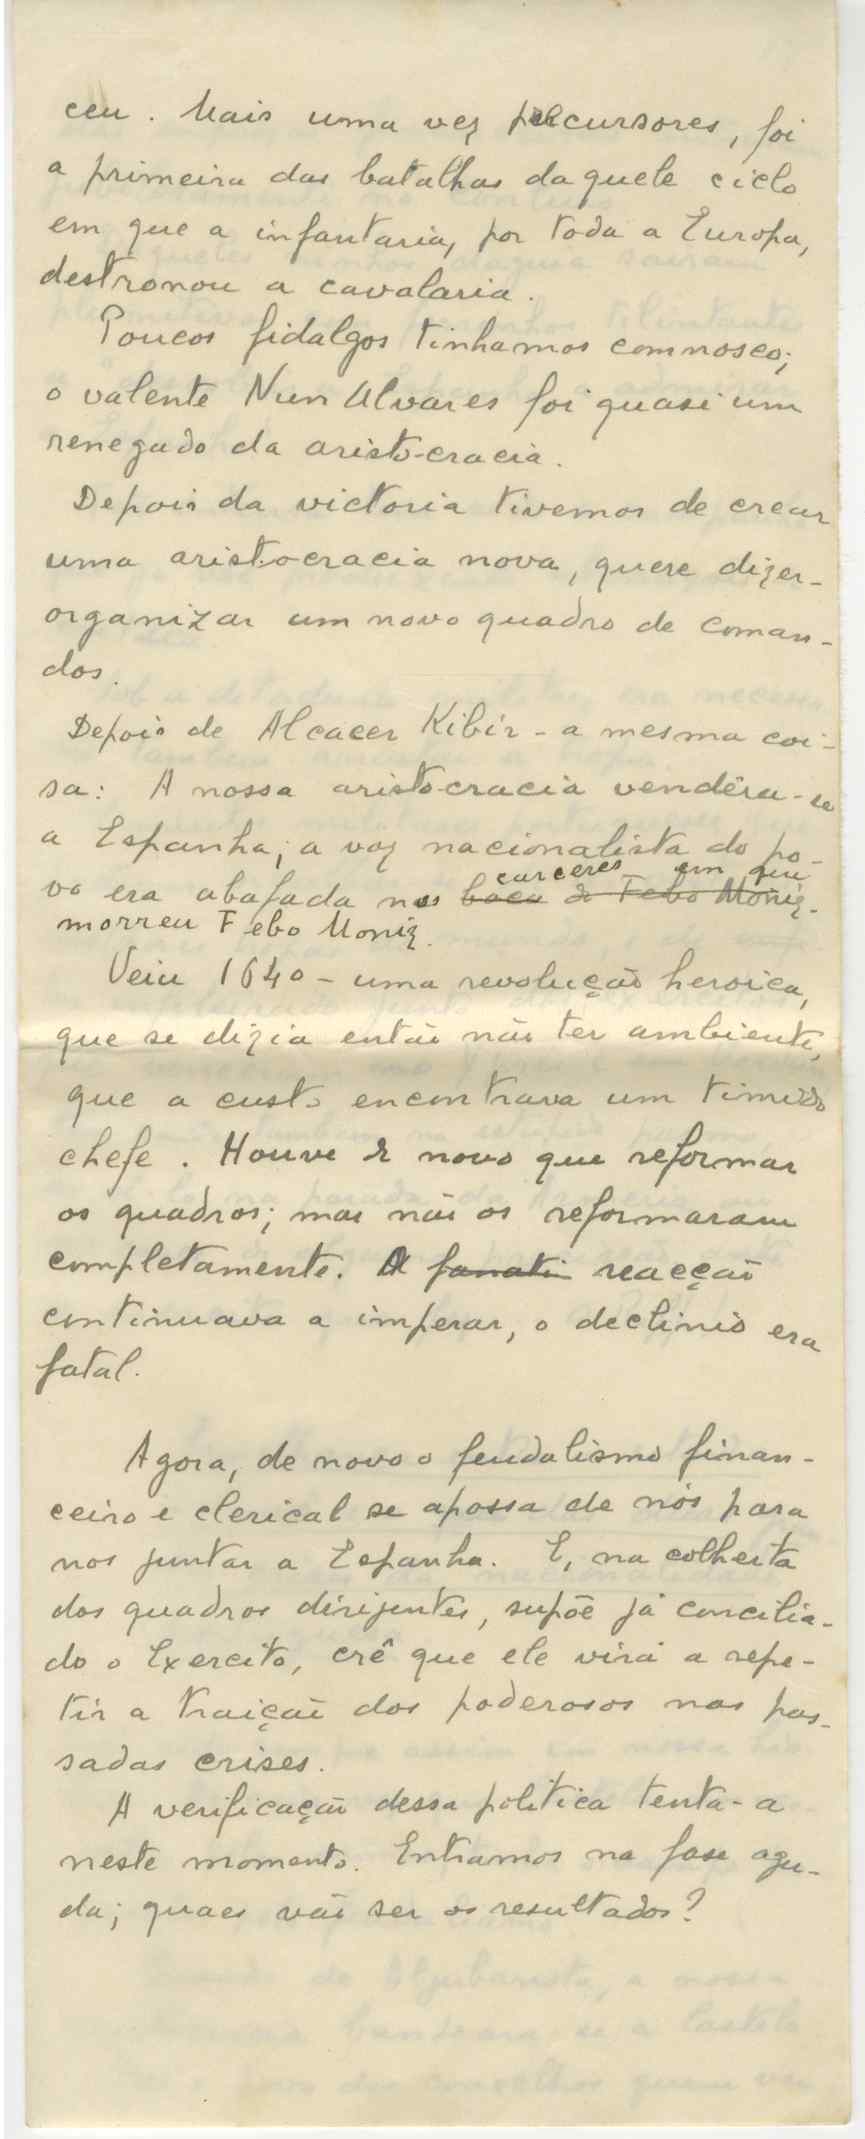 ceu. Mais uma vez precursores, foi
a primeira das batalhas daquele ciclo
em que a infantaria, por toda a Europa,
destronou a cavalaria.
Poucos fidalgos tinhamos comnosco;
o valente Nun Alvares foi quasi um
renegado da aristocracia.
Depois da victoria tivemos de crear
uma aristocracia nova, quere dizer-
organizar um novo quadro de coman-
dos.
Depois de Alcacer Kibir - a mesma coi-
sa: A nossa aristocracia vendêra-se
a Espanha; a voz nacionalista do po-
carceres em que
vo era abafada nos boca de Febo Moniz.
morreu Febo Moniz.
Veiu 1640 - uma revolução heroica,
que se dizia então não ter ambiente,
que a custo encontrava um timido
chefe. Houve de novo que reformar
os quadros; mas não os reformaram
completamente. A fanati reacção
continuava a imperar, o declinio era
fatal.
Agora, de novo o feudalismo finan-
ceiro e clerical se apossa de nós para
nos juntar a Espanha. E, na colheita
dos quadros dirijentes, supõe já concilia-
do o Exercito, crê que ele virá a repe-
tir a traição dos poderosos nas pas-
sadas crises.
A verificação dessa politica tenta-a
neste momento. Entramos na fase agu-
da; quaes vão ser os resultados?